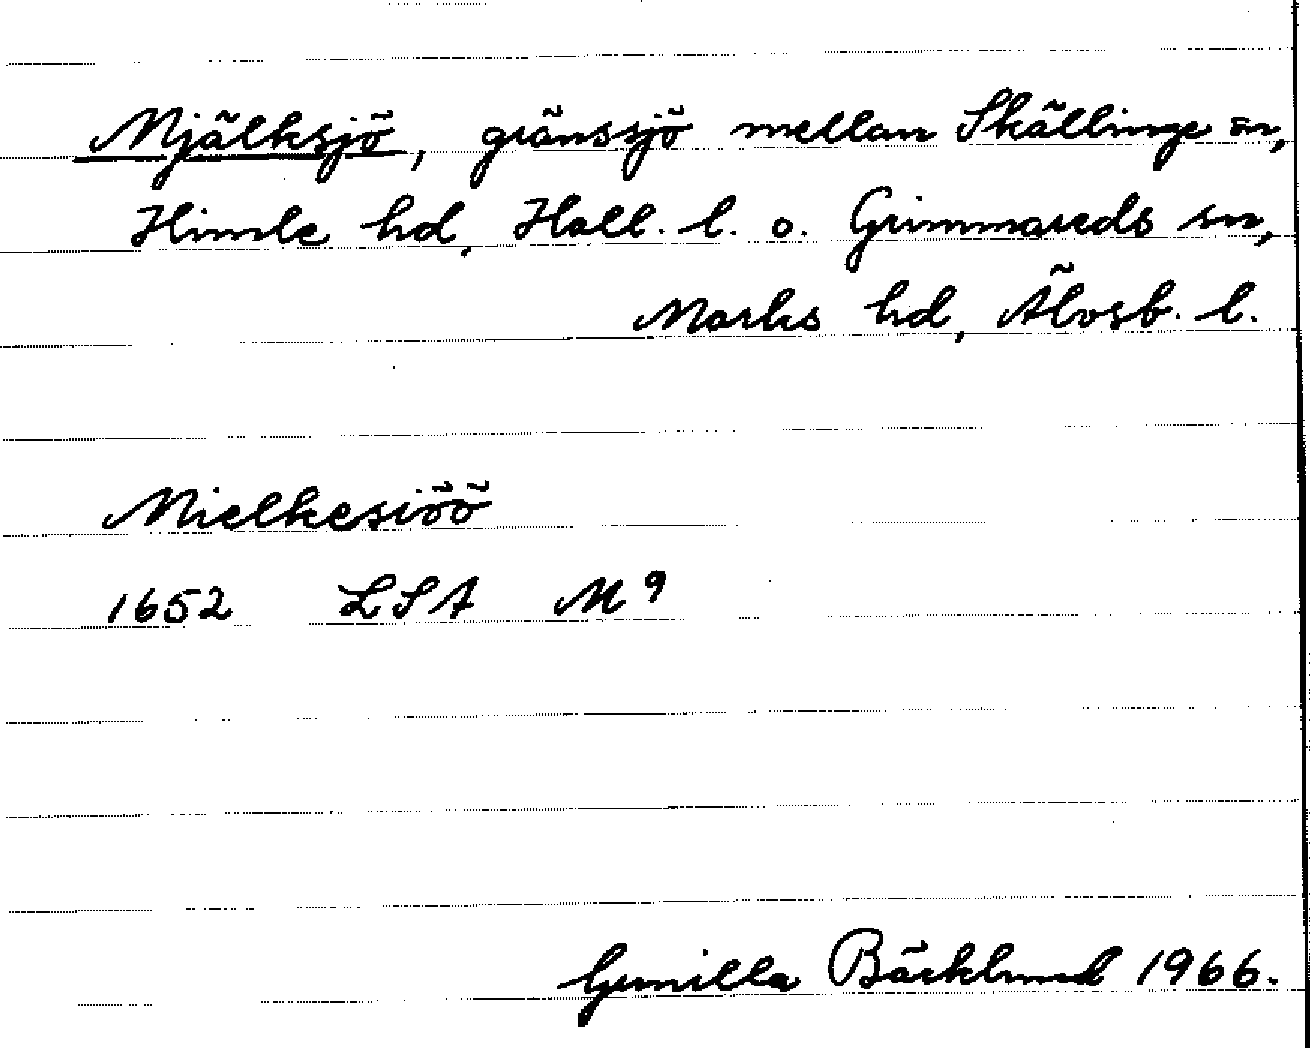 Mjälksjö, gränssjö mellan Skällinge sn,
Himle hd, Hall. l. o. Grimmareds sn,
Marks hd, Älvsb. l.
Mielkesiöö
1652 LSA M 9
Gunilla Bäcklund 1966.